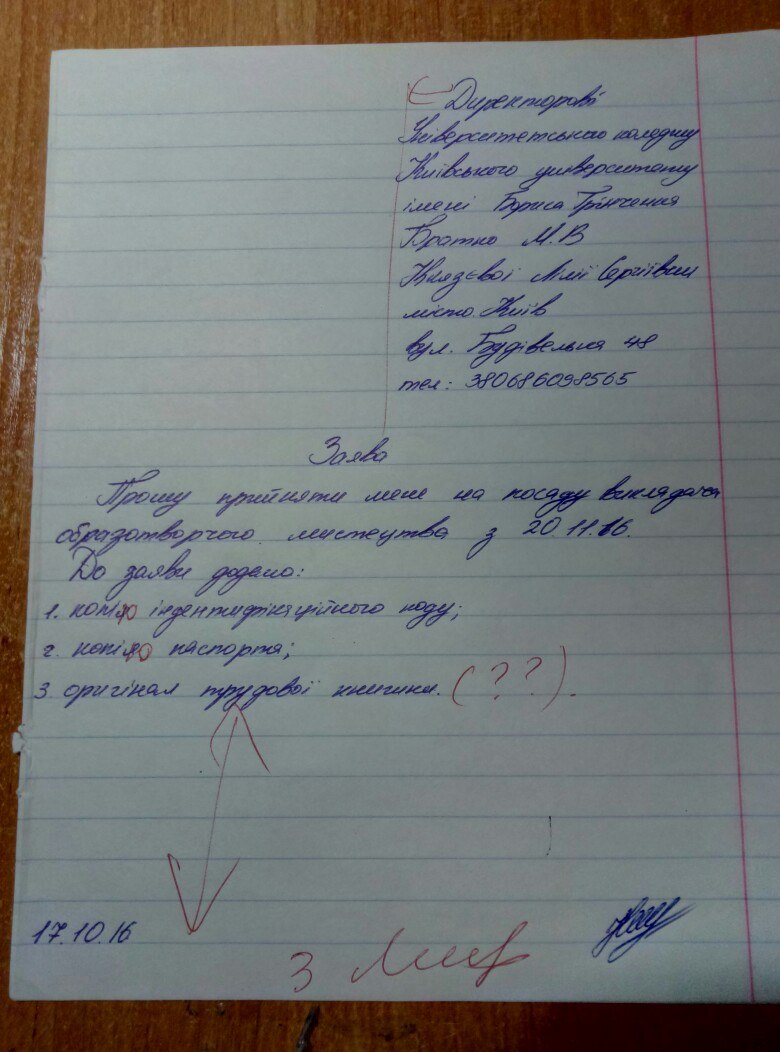 Директорові
Університетського коледжу
Київського університету
імені Бориса Грінченка
Братко М.В
Князєвої Лілії Сергіївни
місто Київ
вул. Будівельна 48
тел: 380686098565
Заява
Прошу прийняти мене на посаду викладача
образотворчого мистецтва з 20.11.16.
До заяви додано:
1. копію індентифікаційного коду;
2. копію паспорта;
3. оригінал трудової книжки. (??).
17.10.16
3